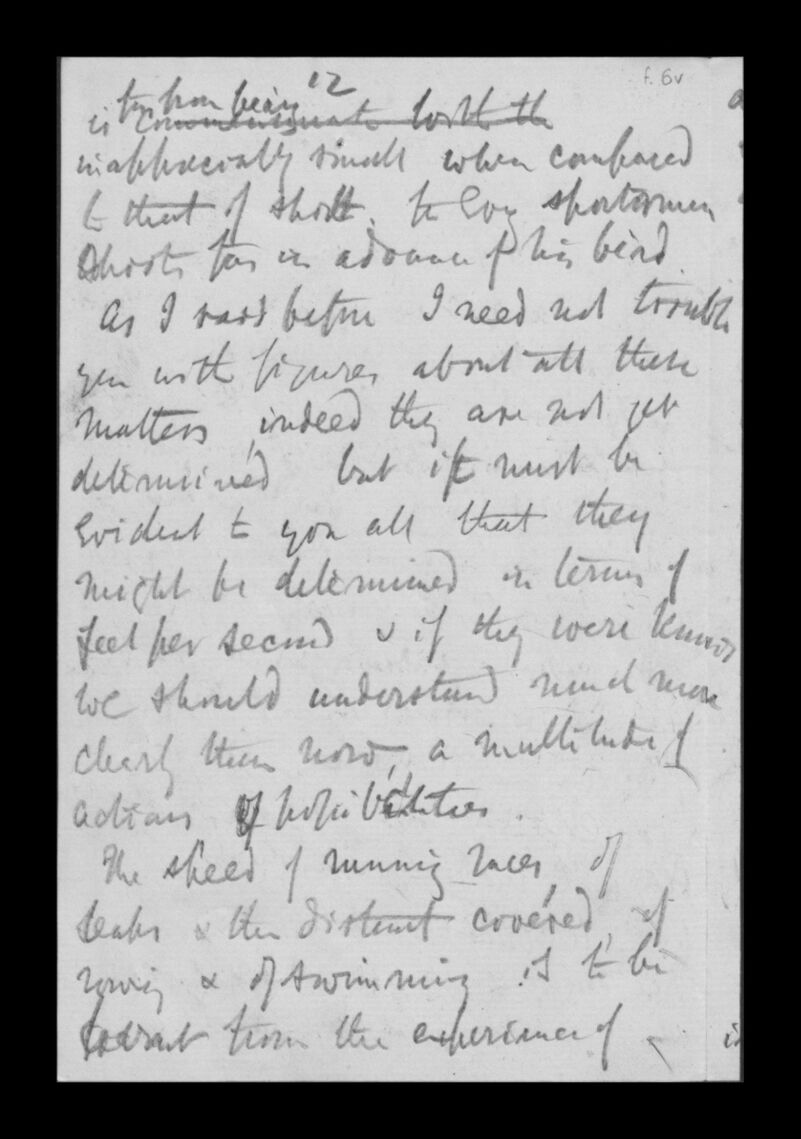 f. 6v
12
is far from being commensurate with the
inappreciably small when compared
to that of shott. Every sportsman
shoots far in advance of his bird
As I said before I need not trouble
you with figures about all these
matters, indeed they are not yet
determined but it must be
evident to you all that they
might be determined in terms of
feet per second & if they were known
we should understand much more
clearly than now, a multitude of
actions of possibilities.
The speed of running races, of
leaps & the distant covered, of
rowing & of swimming is to be
learnt from the experience of